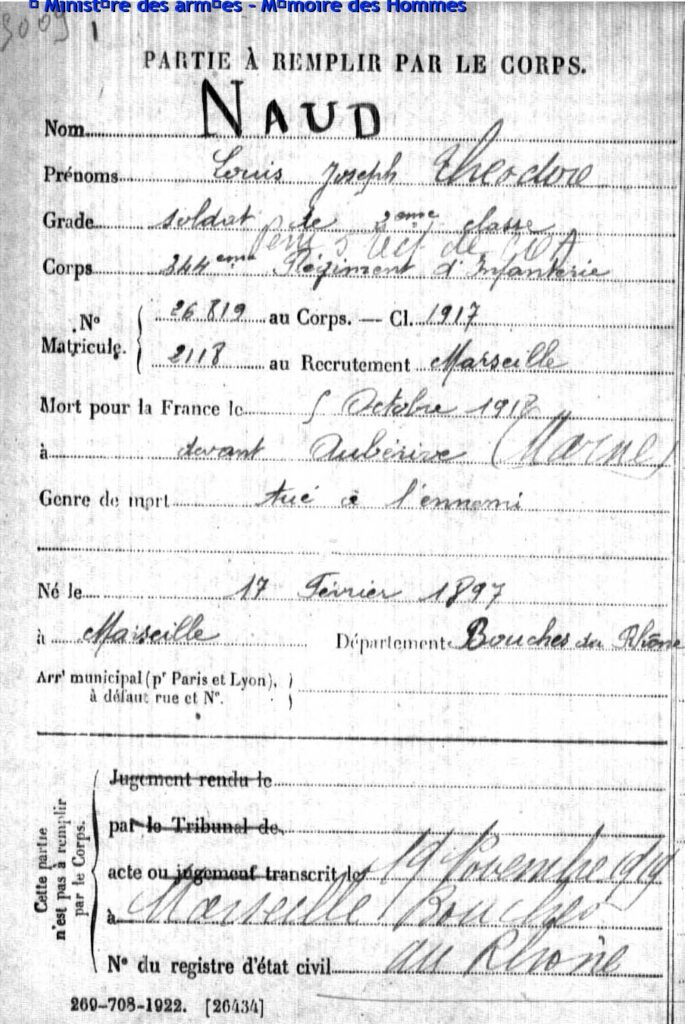 © Ministère des armées - Mémoire des Hommes
3009 1
PARTIE À REMPLIR PAR LE CORPS.
Nom NAUD
Prénoms Louis Joseph Théodore
Grade soldat de 2ème classe
Corps 344eme Régiment d'Infanterie
No Matricule. { 26 819 au Corps. — Cl. 1917
2118 au Recrutement Marseille
Mort pour la France le 5 Octobre 1917
à devant Aubérive (Marne)
Genre de mort tué à l'ennemi
Né le 17 Février 1897
à Marseille Département Bouches du Rhône
Arrt municipal (pr Paris et Lyon),
à défaut rue et No.
Cette partie n'est pas à remplir par le Corps.
Jugement rendu le
par le Tribunal de
acte ou jugement transcrit le 19 Novembre 1919
à Marseille Bouches
No du registre d'état civil du Rhône
269-708-1922. [26434]